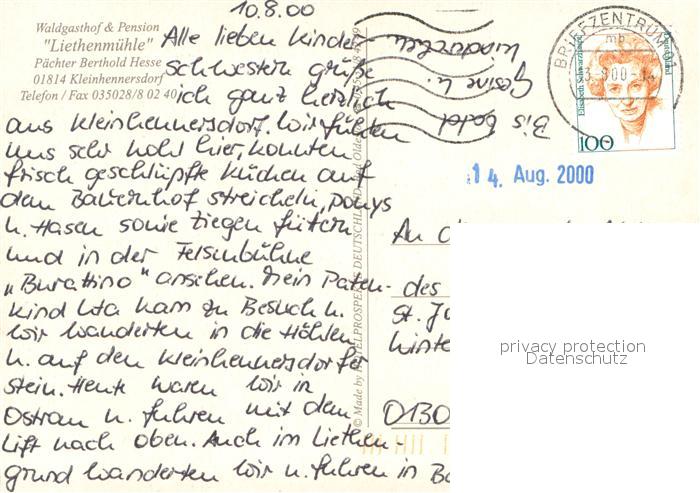 10.8.00
Waldgasthof & Pension
"Liethenmühle"
Pächter Berthold Hesse
01814 Kleinhennersdorf
Telefon / Fax 035028/8 02 40
Alle lieben Kinder-
schwestern grüße
ich ganz herzlich
aus Kleinhennersdorf. Wir fühlen
uns sehr wohl hier, konnten
frisch geschlüpfte Kücken auf
dem Bauernhof streicheln, Ponys
u. Hasen sowie Ziegen füttern
und in der Felsenbühne
„Burattino" ansehen. Mein Paten-
kind Uta kam zu Besuch u.
wir wanderten in die Höhlen
u. auf den Kleinhennersdorfer
stein. Heute waren wir in
Ostrau u. fuhren mit dem
Lift nach oben. Auch im Liethen-
grund wanderten wir u. fuhren in Ba
Bis bald
Gesine u.
© Made by HOTELPROSPEKTE DEUTSCHLAND
BRIEFZENTRUM 01
mb
Elisabeth Schwarzhaupt
Deutschland
100
14. Aug. 2000
An
des
St. Ju
Winte
0130
privacy protection
Datenschutz